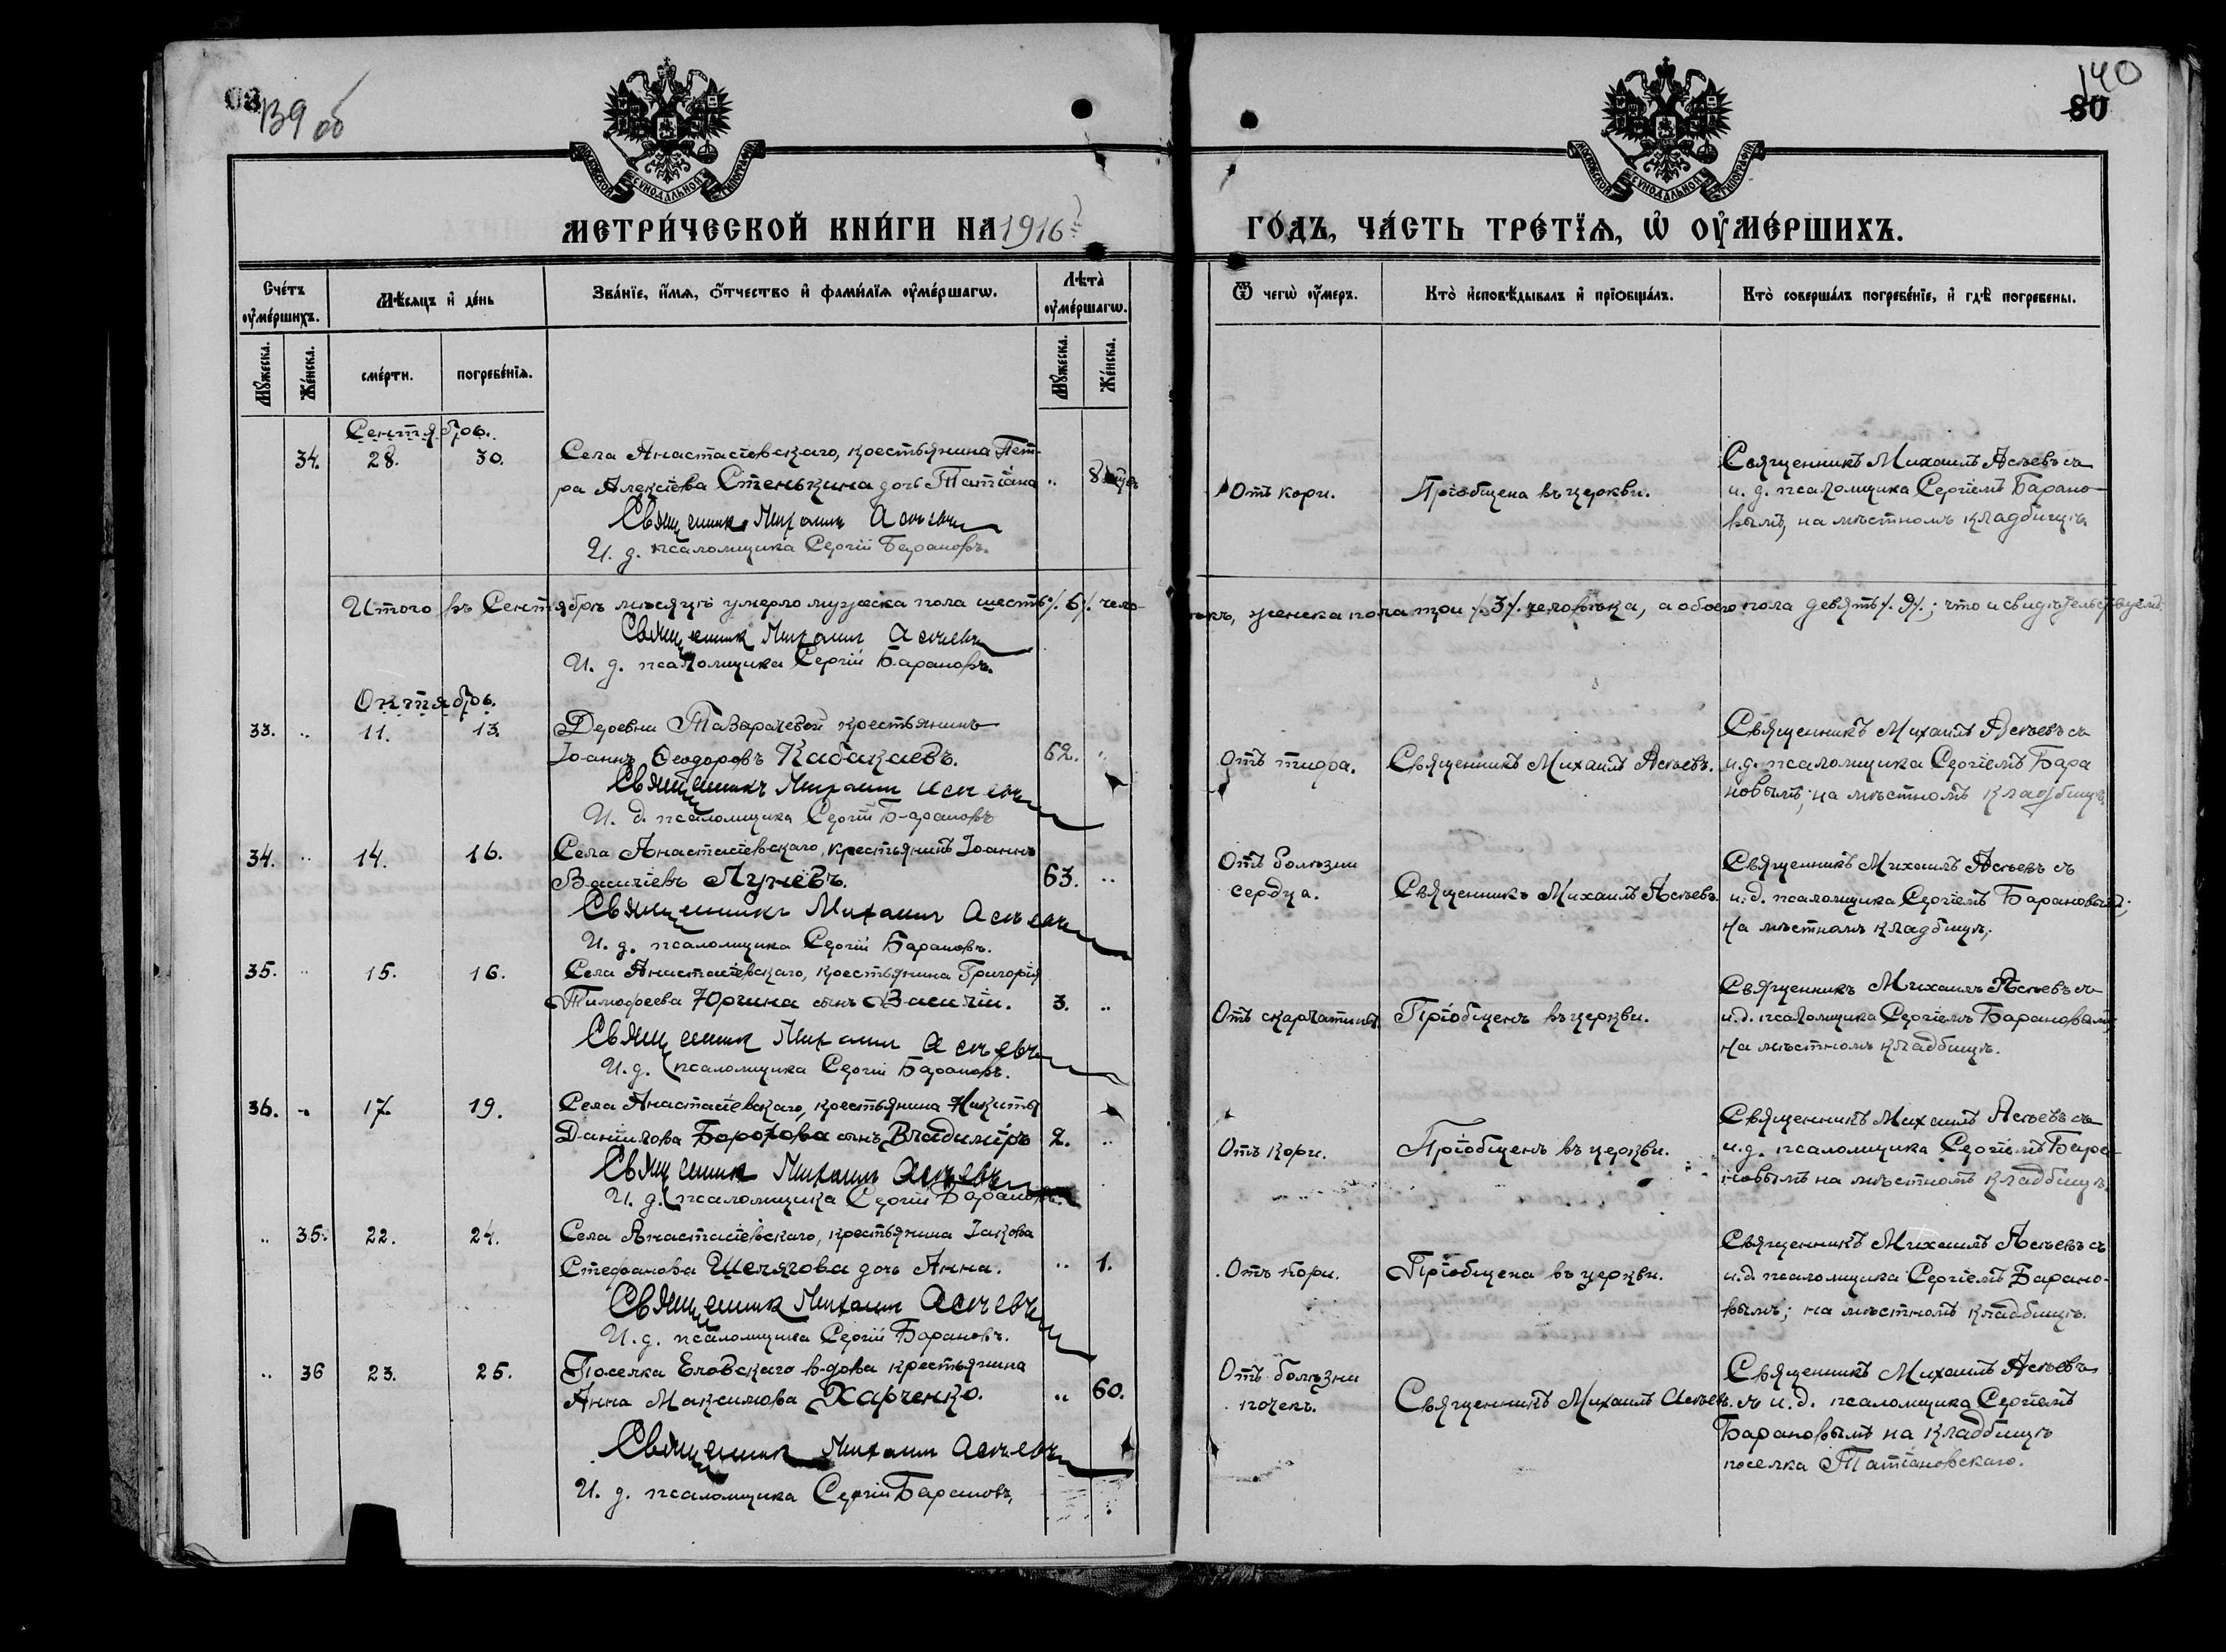 139 об
140
80
МОСКОВСКОЙ СУНОДАЛЬНОЙ ТИПОГРАФІИ
МОСКОВСКОЙ СУНОДАЛЬНОЙ ТИПОГРАФІИ
МЕТРИ́ЧЕСКОЙ КНИ́ГИ НА 1916
ГО́ДЪ, ЧА́СТЬ ТРЕ́ТЇѦ, Ѡ҆ ОУ҆МЕ́РШИХЪ.
Сче́тъ оу҆ме́ршихъ.
Мѣ́сяцъ и҆ де́нь
Зва́нїе, и҆́мѧ, о҆́тчество и҆ фами́лїѧ оу҆ме́ршагѡ.
Лѣта̀ оу҆ме́ршагѡ.
Ѿ чегѡ̀ оу҆́меръ.
Кто̀ и҆сповѣ́дывалъ и҆ прїобща́лъ.
Кто̀ соверша́лъ погребе́нїе, и҆ гдѣ̀ погребены.
Мꙋ́жеска.
Же́нска.
сме́рти.
погребе́нїѧ.
Мꙋ́жеска.
Же́нска.
Сентябрь.
34. 28. 30.
Села Анастасіевскаго, крестьянина Пет-
ра Алексіева Стенькина дочь Татіана „ 8
Священникъ Михаилъ Асѣевъ
И. д. псаломщика Сергій Барановъ.
Отъ кори.
Пріобщена въ церкви.
Священникъ Михаилъ Асѣевъ съ
и. д. псаломщика Сергіемъ Барано-
вымъ, на мѣстномъ кладбищѣ.
Итого въ Сентябрѣ мѣсяцѣ умерло мужеска пола шесть /. 6 /. чело-
вѣкъ, женска пола три /. 3 /. человѣка, а обоего пола девять /. 9 /.; что и свидѣтельствуемъ:
Священникъ Михаилъ Асѣевъ
И. д. псаломщика Сергій Барановъ.
Октябрь.
33. „ 11. 13.
Деревни крестьянинъ
Іоаннъ Ѳеодоровъ Кабакаевъ. 62. „
Священникъ Михаилъ Асѣевъ
И. д. псаломщика Сергій Барановъ
Отъ тифа.
Священникъ Михаилъ Асѣевъ.
Священникъ Михаилъ Асѣевъ съ
и. д. псаломщика Сергіемъ Бара
новымъ; на мѣстномъ кладбищѣ.
34. „ 14. 16.
Села Анастасіевскаго, крестьянинъ Іоаннъ
Василіевъ Луневъ. 63. „
Священникъ Михаилъ Асѣевъ
И. д. псаломщика Сергій Барановъ.
Отъ болѣзни
сердца.
Священникъ Михаилъ Асѣевъ.
Священникъ Михаилъ Асѣевъ съ
и. д. псаломщика Сергіемъ Барановымъ;
на мѣстномъ кладбищѣ.
35. „ 15. 16.
Села Анастасіевскаго, крестьянина Григорія
Тимофеева Юргина сынъ Василій. 3. „
Священникъ Михаилъ Асѣевъ
И. д. псаломщика Сергій Барановъ.
Отъ скарлатины.
Пріобщенъ въ церкви.
Священникъ Михаилъ Асѣевъ съ
и. д. псаломщика Сергіемъ Барановымъ
на мѣстномъ кладбищѣ.
36. „ 17. 19.
Села Анастасіевскаго, крестьянина Никиты
Даніилова сынъ Владиміръ 2. „
Священникъ Михаилъ Асѣевъ
И. д. псаломщика Сергій Барановъ.
Отъ кори.
Пріобщенъ въ церкви.
Священникъ Михаилъ Асѣевъ съ
и. д. псаломщика Сергіемъ Бара-
новымъ на мѣстномъ кладбищѣ.
„ 35. 22. 24.
Села Анастасіевскаго, крестьянина Іакова
Стефанова Шелягова дочь Анна. „ 1.
Священникъ Михаилъ Асѣевъ
И. д. псаломщика Сергій Барановъ.
Отъ кори.
Пріобщена въ церкви.
Священникъ Михаилъ Асѣевъ съ
и. д. псаломщика Сергіемъ Барано-
вымъ; на мѣстномъ кладбищѣ.
„ 36 23. 25.
Поселка Еловскаго вдова крестьянина
Анна Максимова Харченко. „ 60.
Священникъ Михаилъ Асѣевъ
И. д. псаломщика Сергій Барановъ.
Отъ болѣзни
почекъ.
Священникъ Михаилъ Асѣевъ.
Священникъ Михаилъ Асѣевъ
съ и. д. псаломщика Сергіемъ
Барановымъ на кладбищѣ
поселка Татіановскаго.